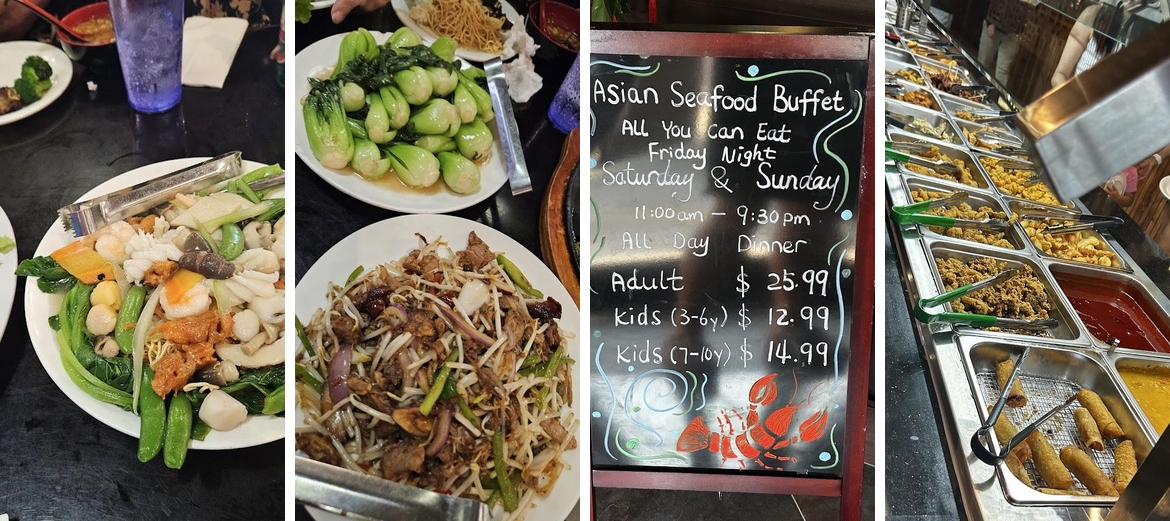 Asian Seafood Buffet
All You Can Eat
Friday Night
Saturday & Sunday
11:00am - 9:30pm
All Day Dinner
Adult $ 25.99
Kids (3-6y) $ 12.99
Kids (7-10y) $ 14.99